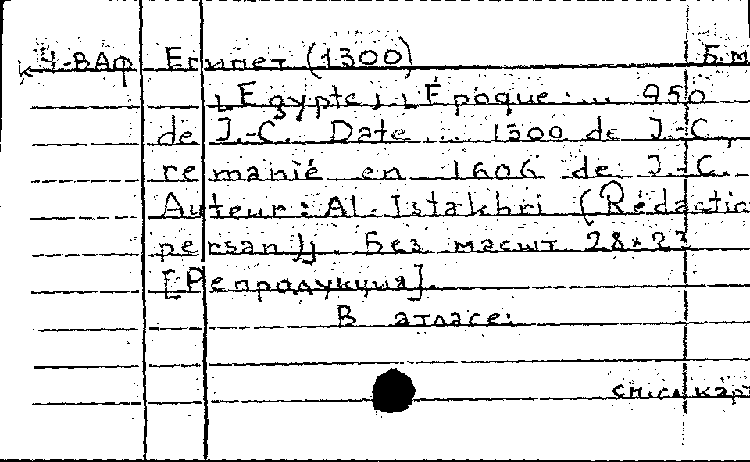 4-ВАф Египет (1300) Б.м
[Egypte]; [Époque:... 950
de J.-C. Date ... 1300 de J.-C.,
remanié en 1606 de J.-C.
Auteur: Al. Istakhri (Rédactio
persan)]. Без масшт. 28×23
[Репродукция].
В атласе:
см.сл.карт